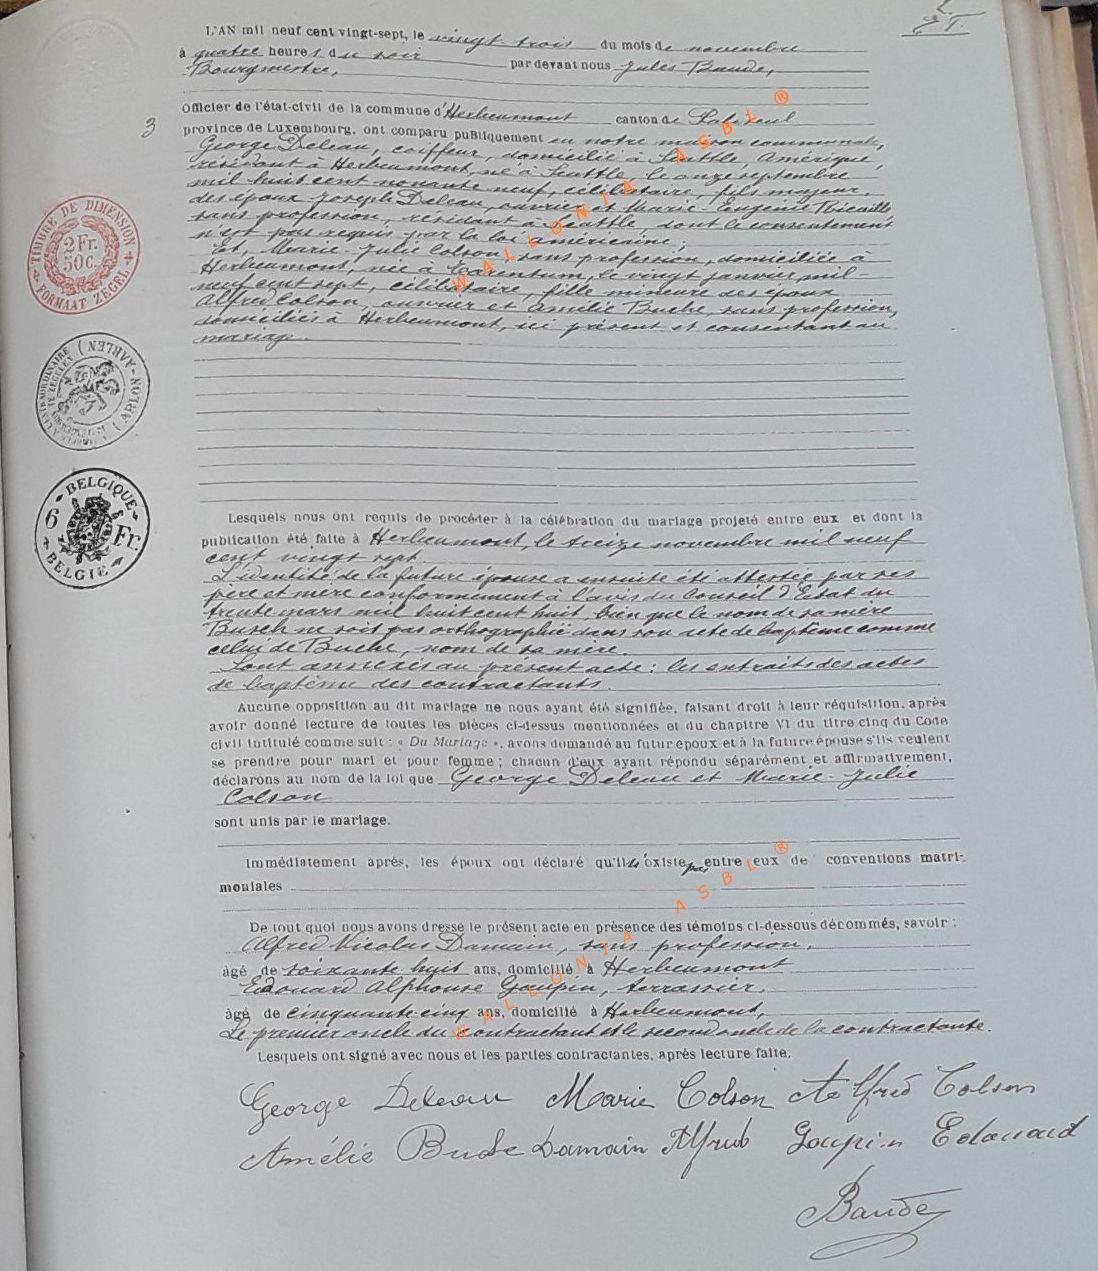 L'AN mil neuf cent vingt-sept, le vingt-trois du mois de novembre
à quatre heures du soir par devant nous Jules Baude,
Bourgmestre,
Officier de l'état-civil de la commune d'Herbeumont canton de
3
province de Luxembourg, ont comparu publiquement en notre maison communale,
George Deleau, coiffeur, domicilié à Seattle, Amérique,
résidant à Herbeumont, né à Seattle, le onze septembre
mil huit cent nonante neuf, célibataire, fils majeur,
des époux Joseph Deleau, ouvrier et Marie-Eugénie
sans profession, résidant à Seattle, dont le consentement
n'est pas requis par la loi américaine;
Et, Marie-Julie Colson, sans profession, domiciliée à
Herbeumont, née à Tarentum, le vingt janvier mil
neuf cent sept, célibataire, fille mineure des époux
Alfred Colson, ouvrier et Amélie Buche, sans profession,
domiciliés à Herbeumont, ici présent et consentant au
mariage.
TIMBRE DE DIMENSION
2 Fr.
50 c.
FORMAAT ZEGEL
(ARLON-AARLEN)
BELGIQUE
6 Fr.
BELGIE
Lesquels nous ont requis de procéder à la célébration du mariage projeté entre eux et dont la
publication été faite à Herbeumont, le treize novembre mil neuf
cent vingt sept
L'identité de la future épouse a ensuite été attestée par ses
père et mère conformément à l'avis du Conseil d'Etat du
trente mars mil huit cent huit, bien que le nom de sa mère
Busch ne soit pas orthographié dans son acte de baptême comme
celui de Buche, nom de sa mère.
Sont annexés au présent acte: les extraits des actes
de baptême des contractants.
Aucune opposition au dit mariage ne nous ayant été signifiée, faisant droit à leur réquisition, après
avoir donné lecture de toutes les pièces ci-dessus mentionnées et du chapitre VI du titre cinq du Code
civil intitulé comme suit: « Du Mariage », avons demandé au futur époux et à la future épouse s'ils veulent
se prendre pour mari et pour femme; chacun d'eux ayant répondu séparément et affirmativement,
déclarons au nom de la loi que George Deleau et Marie-Julie
Colson
sont unis par le mariage.
Immédiatement après, les époux ont déclaré qu'il n'existe pas entre eux de conventions matri-
moniales
De tout quoi nous avons dressé le présent acte en présence des témoins ci-dessous dénommés, savoir:
Alfred Nicolas Damain, sans profession,
âgé de soixante huit ans, domicilié à Herbeumont
Edouard Alphonse Goupin, terrassier,
âgé de cinquante-cinq ans, domicilié à Herbeumont,
Le premier oncle du contractant et le second oncle de la contractante.
Lesquels ont signé avec nous et les parties contractantes, après lecture faite.
George Deleau Marie Colson Alfred Colson
Amélie Buche Damain Alfred Goupin Edouard
Baude
WALLONIA ASBL ®
WALLONIA ASBL ®